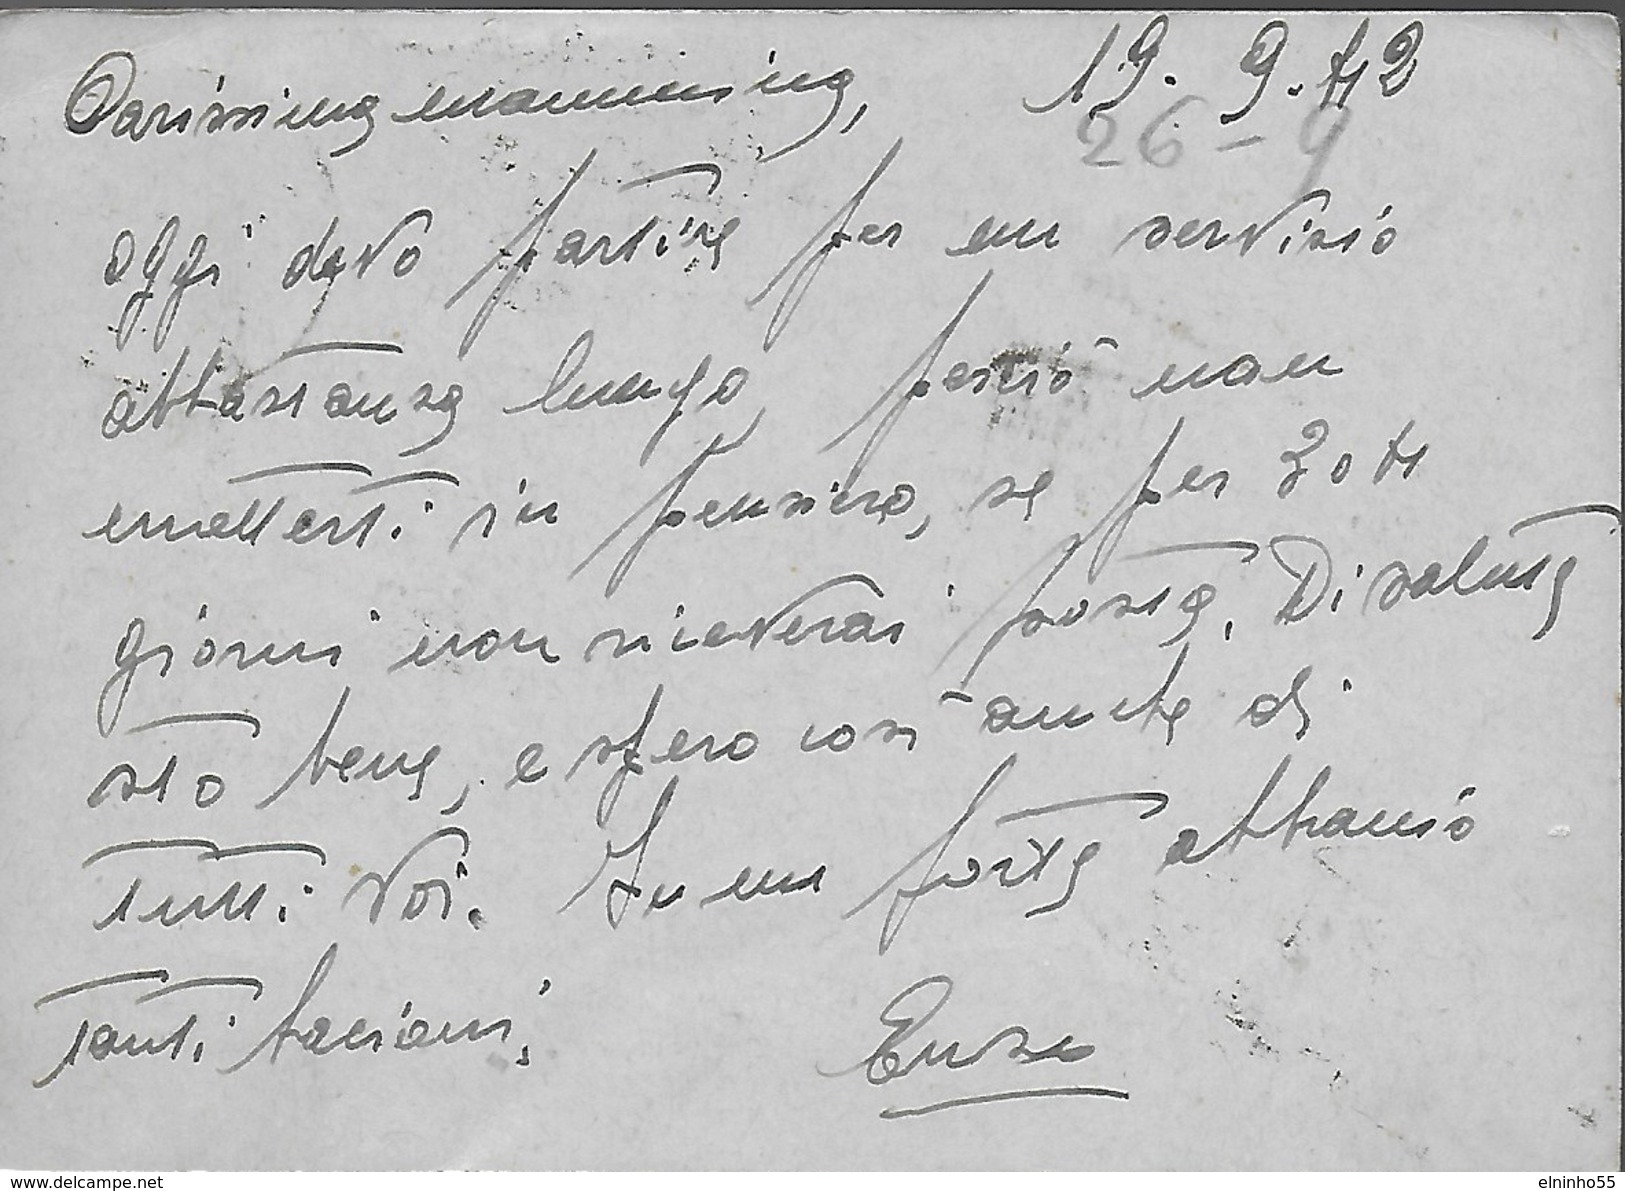 Carissima mammina, 19. 9. 42
26 - 9
oggi devo partire per un servizio
abbastanza lungo, perciò non
metterti in pensiero, se per 3 o 4
giorni non riceverai posta. Di salute
sto bene, e spero così anche di
tutti voi. In un forte abbraccio
tanti bacioni,
Enzo
www.delcampe.net
elninho55